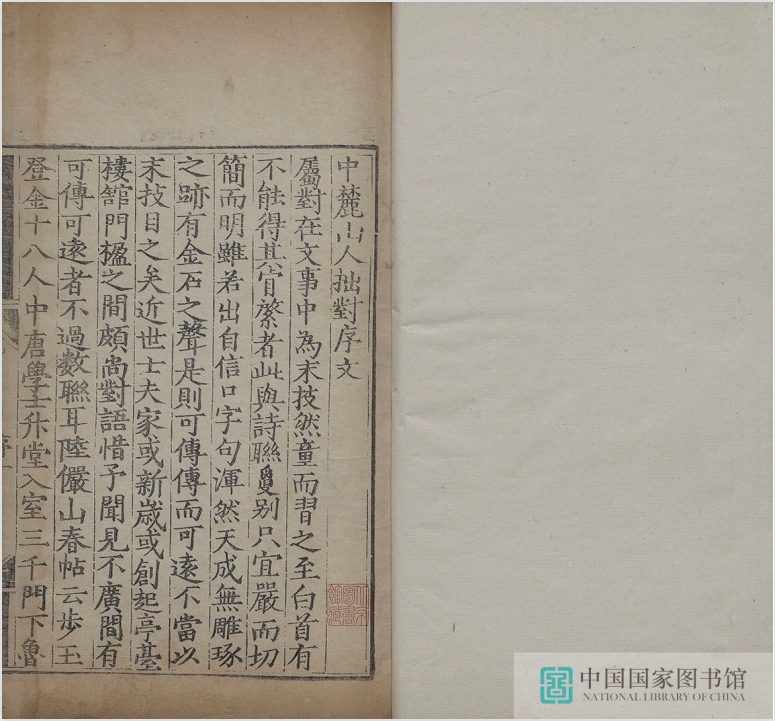 中麓山人拙對序文
屬對在文事中為末技然童而習之至白首有
不能得其肯綮者此與詩聯敻别只宜嚴而切
簡而明雖若出自信口字句渾然天成無雕琢
之跡有金石之聲是則可傳傳而可遠不當以
末技目之矣近世士夫家或新歳或創起亭臺
樓舘門楹之間頗尚對語惜予聞見不廣間有
可傳可遠者不過數聯耳陸儼山春帖云步玉
登金十八人中唐學士升堂入室三千門下魯
中国国家图书馆
NATIONAL LIBRARY OF CHINA